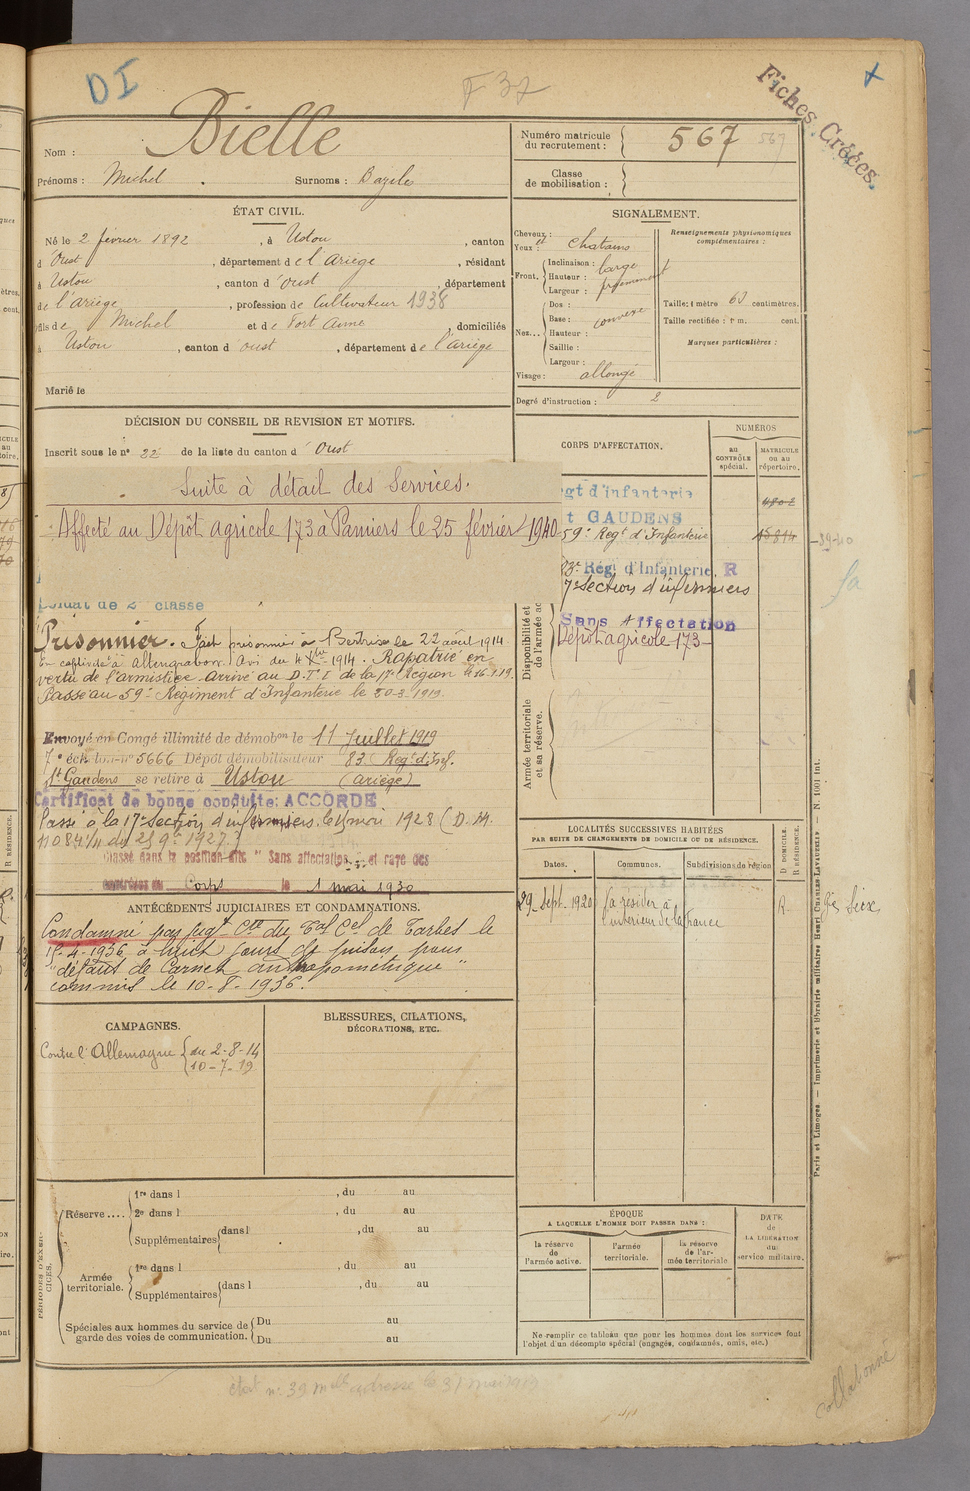 DI
F 37
Fiches Créées.
Nom : Bielle
Prénoms : Michel . Surnoms : Bazile
Numéro matricule du recrutement : 567 567
Classe de mobilisation :
ÉTAT CIVIL.
Né le 2 février 1892, à Ustou, canton
d'Oust, département de l'Ariège, résidant
à Ustou, canton d'Oust, département
de l'ariège, profession de Cultivateur 1938
fils de Michel et de Fort Anne, domiciliés
à Ustou, canton d'oust, département de l'ariège
Marié le
SIGNALEMENT.
Cheveux :
Yeux : et chatains
Front. Inclinaison : large
Hauteur :
Largeur :
Nez... Dos :
Base : convexe
Hauteur :
Saillie :
Largeur :
Visage : allongé
Renseignements physionomiques complémentaires :
Taille : 1 mètre 63 centimètres.
Taille rectifiée : 1 m. cent.
Marques particulières :
Degré d'instruction : 2
DÉCISION DU CONSEIL DE REVISION ET MOTIFS.
Inscrit sous le n° 22 de la liste du canton d'Oust
Suite à détail des Services.
Affecté au Dépôt agricole 173 à Pamiers le 25 février 1940
Soldat de 2e classe
Prisonnier. Fait prisonnier à Bertrix le 22 août 1914.
En captivité à Altengrabow. Avis du 4 Xbre 1914. Rapatrié en
vertu de l'armistice arrivé au D.T.I de la 17e Région le 16.1.19.
Passé au 59e Régiment d'Infanterie le 20-3-1919.
Envoyé en Congé illimité de démobon le 11 Juillet 1919
7e échelon no 5666 Dépôt démobilisateur 83. Regt d'Inf.
St Gaudens se retire à Ustou (Ariège)
Certificat de bonne conduite: ACCORDÉ
Passé à la 17e Section d'infirmiers le 1 mai 1928 (D. M.
no 8411/11 du 25 9bre 1927)
Classé dans la position dite "Sans affectation" et rayé des
contrôles du Corps le 1 mai 1930
CORPS D'AFFECTATION.
NUMÉROS
au CONTRÔLE spécial.
MATRICULE ou au répertoire.
egt d'infanterie
t GAUDENS
59e Regt d'Infanterie
83e Régt d'Infanterie. R
17e Section d'infirmiers
Sans Affectation
Dépôt agricole 173
Disponibilité et
de l'armée ac
Armée territoriale
et sa réserve.
LOCALITÉS SUCCESSIVES HABITÉES
PAR SUITE DE CHANGEMENTS DE DOMICILE OU DE RÉSIDENCE.
Dates. Communes. Subdivisions de région D. DOMICILE. R. RÉSIDENCE.
29 Sept. 1920 Va résider à R
l'intérieur de la France
gie Seix
ANTÉCÉDENTS JUDICIAIRES ET CONDAMNATIONS.
Condamné par jugt Cre du Tal Cel de Tarbes le
15-4-1936 à huit jours de prison pour
"défaut de Carnet anthropométrique"
commis le 10-8-1936.
CAMPAGNES.
Contre l'Allemagne du 2-8-14
10-7-19
BLESSURES, CITATIONS,
DÉCORATIONS, ETC.
PÉRIODES D'EXERCICES.
Réserve.... 1re dans l , du au
2e dans l , du au
Supplémentaires dans l , du au
Armée territoriale. 1re dans l , du au
Supplémentaires dans l , du au
Spéciales aux hommes du service de garde des voies de communication. Du au
Du au
ÉPOQUE
A LAQUELLE L'HOMME DOIT PASSER DANS :
la réserve de l'armée active.
l'armée territoriale.
la réserve de l'armée territoriale
DATE de LA LIBÉRATION du service militaire.
Ne remplir ce tableau que pour les hommes dont les services font
l'objet d'un décompte spécial (engagés, condamnés, omis, etc.)
Paris et Limoges. — Imprimerie et librairie militaires Henri CHARLES-LAVAUZELLE — N. 1001 int.